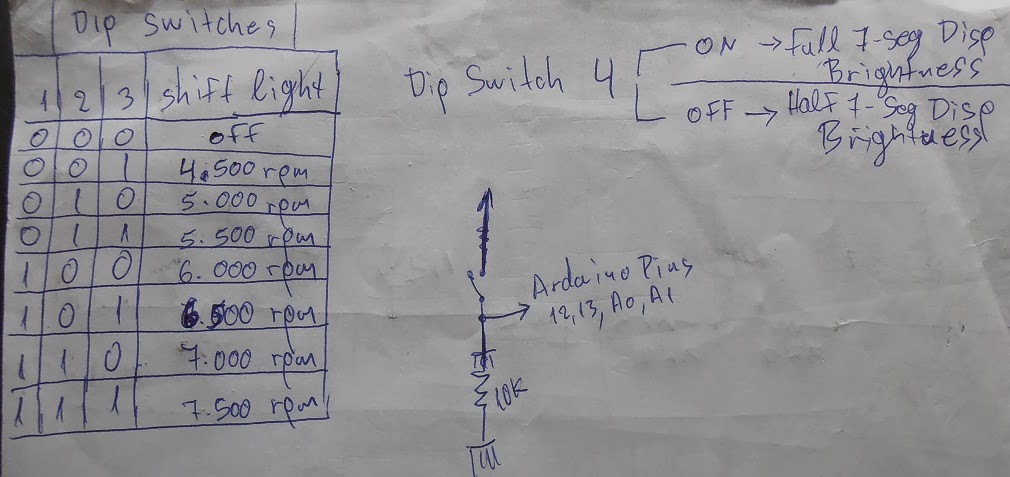 Dip Switches
1 2 3 shift light
0 0 0 off
0 0 1 4.500 rpm
0 1 0 5.000 rpm
0 1 1 5.500 rpm
1 0 0 6.000 rpm
1 0 1 6.500 rpm
1 1 0 7.000 rpm
1 1 1 7.500 rpm
Dip Switch 4
ON → Full 7-seg Disp
Brightness
OFF → Half 7-Seg Disp
Brightness
Arduino Pins
12, 13, A0, A1
10K